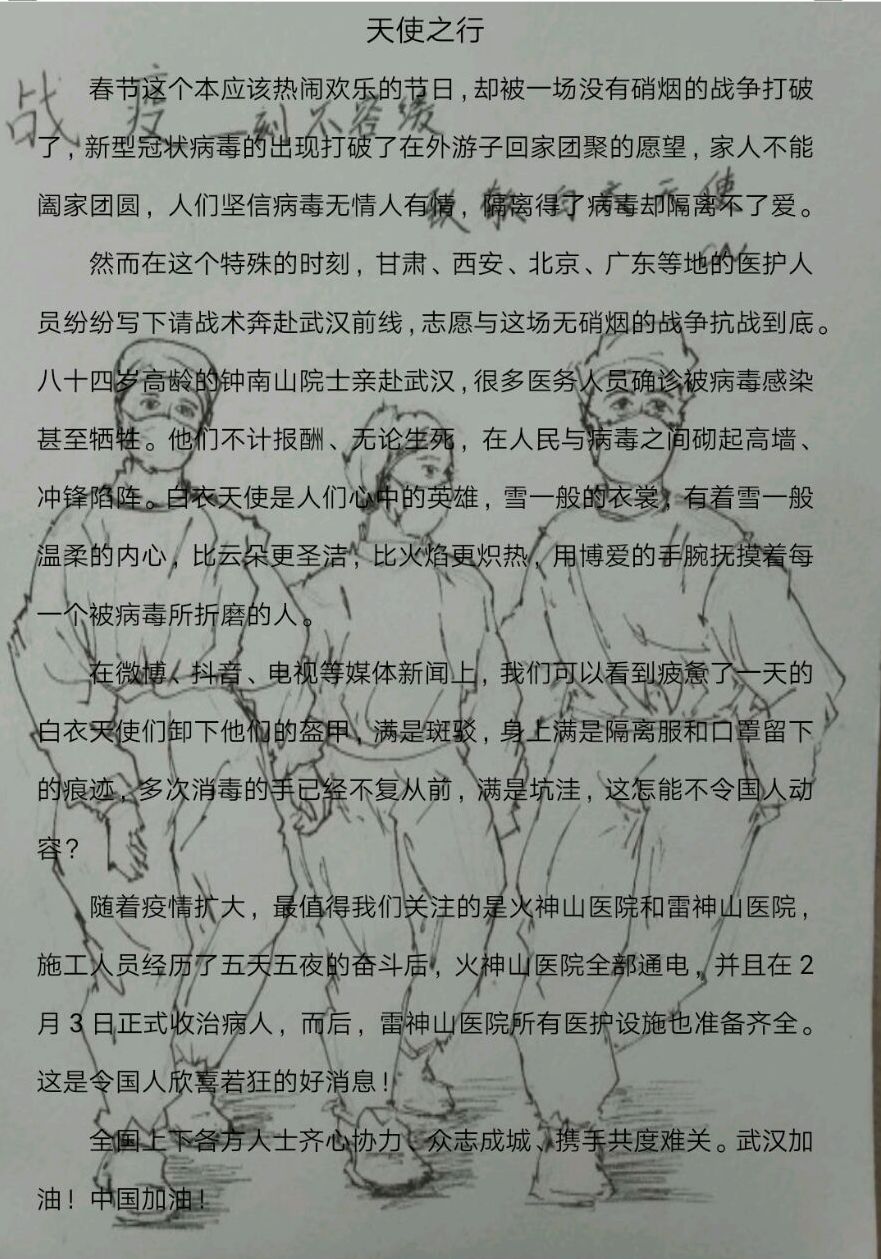 天使之行
春节这个本应该热闹欢乐的节日,却被一场没有硝烟的战争打破
战 疫 一刻不容缓
了,新型冠状病毒的出现打破了在外游子回家团聚的愿望,家人不能
阖家团圆,人们坚信病毒无情人有情,隔离得了病毒却隔离不了爱。
致敬白衣天使
然而在这个特殊的时刻,甘肃、西安、北京、广东等地的医护人
员纷纷写下请战术奔赴武汉前线,志愿与这场无硝烟的战争抗战到底。
八十四岁高龄的钟南山院士亲赴武汉,很多医务人员确诊被病毒感染
甚至牺牲。他们不计报酬、无论生死,在人民与病毒之间砌起高墙、
冲锋陷阵。白衣天使是人们心中的英雄,雪一般的衣裳,有着雪一般
温柔的内心,比云朵更圣洁,比火焰更炽热,用博爱的手腕抚摸着每
一个被病毒所折磨的人。
在微博、抖音、电视等媒体新闻上,我们可以看到疲惫了一天的
白衣天使们卸下他们的盔甲,满是斑驳,身上满是隔离服和口罩留下
的痕迹,多次消毒的手已经不复从前,满是坑洼,这怎能不令国人动
容?
随着疫情扩大,最值得我们关注的是火神山医院和雷神山医院,
施工人员经历了五天五夜的奋斗后,火神山医院全部通电,并且在 2
月 3 日正式收治病人,而后,雷神山医院所有医护设施也准备齐全。
这是令国人欣喜若狂的好消息!
全国上下各方人士齐心协力、众志成城、携手共度难关。武汉加
油!中国加油!